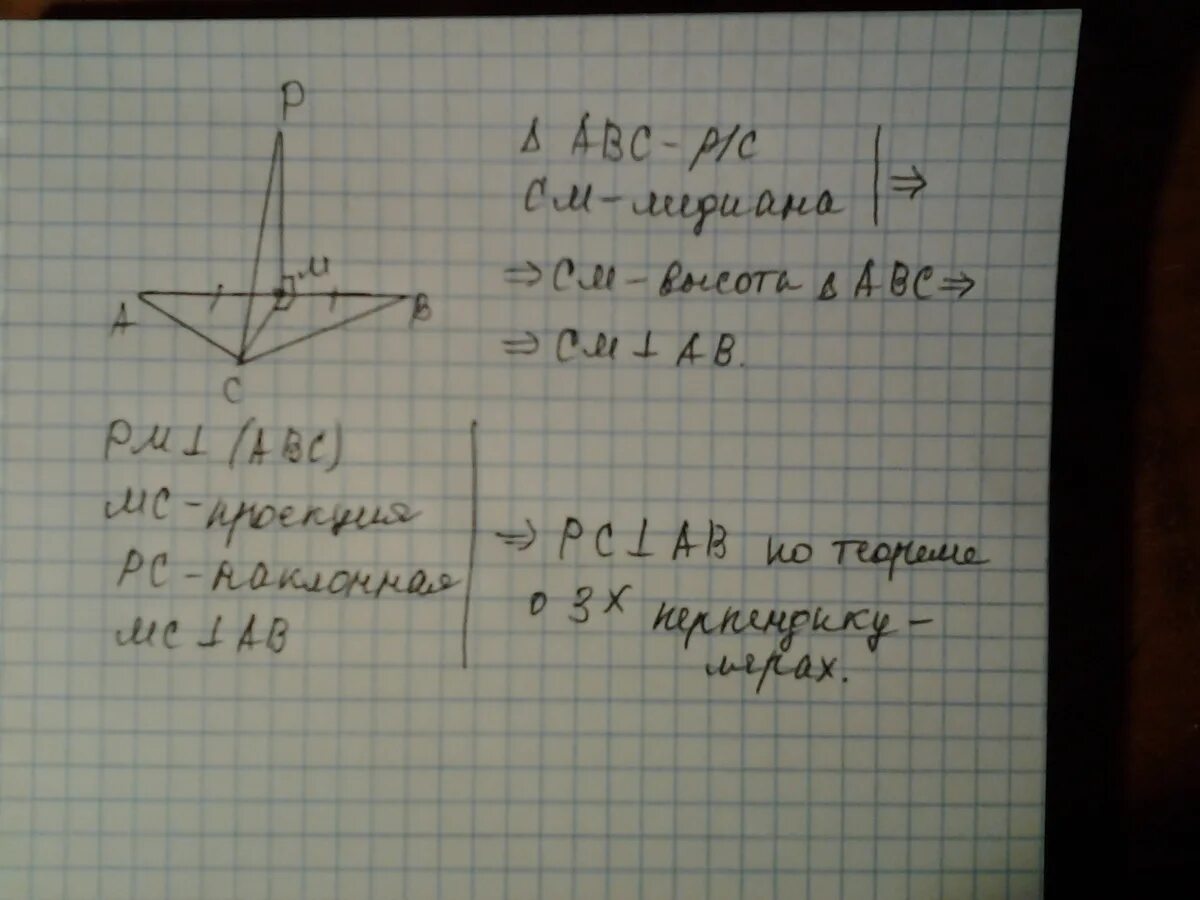 P
M
A
B
C
Δ ABC - р/с
CM - медиана
⇒
⇒ CM - высота Δ ABC ⇒
⇒ CM ⊥ AB.
PM ⊥ (ABC)
MC - проекция
PC - наклонная
MC ⊥ AB
⇒ PC ⊥ AB по теореме
о 3х перпендику-
лярах.